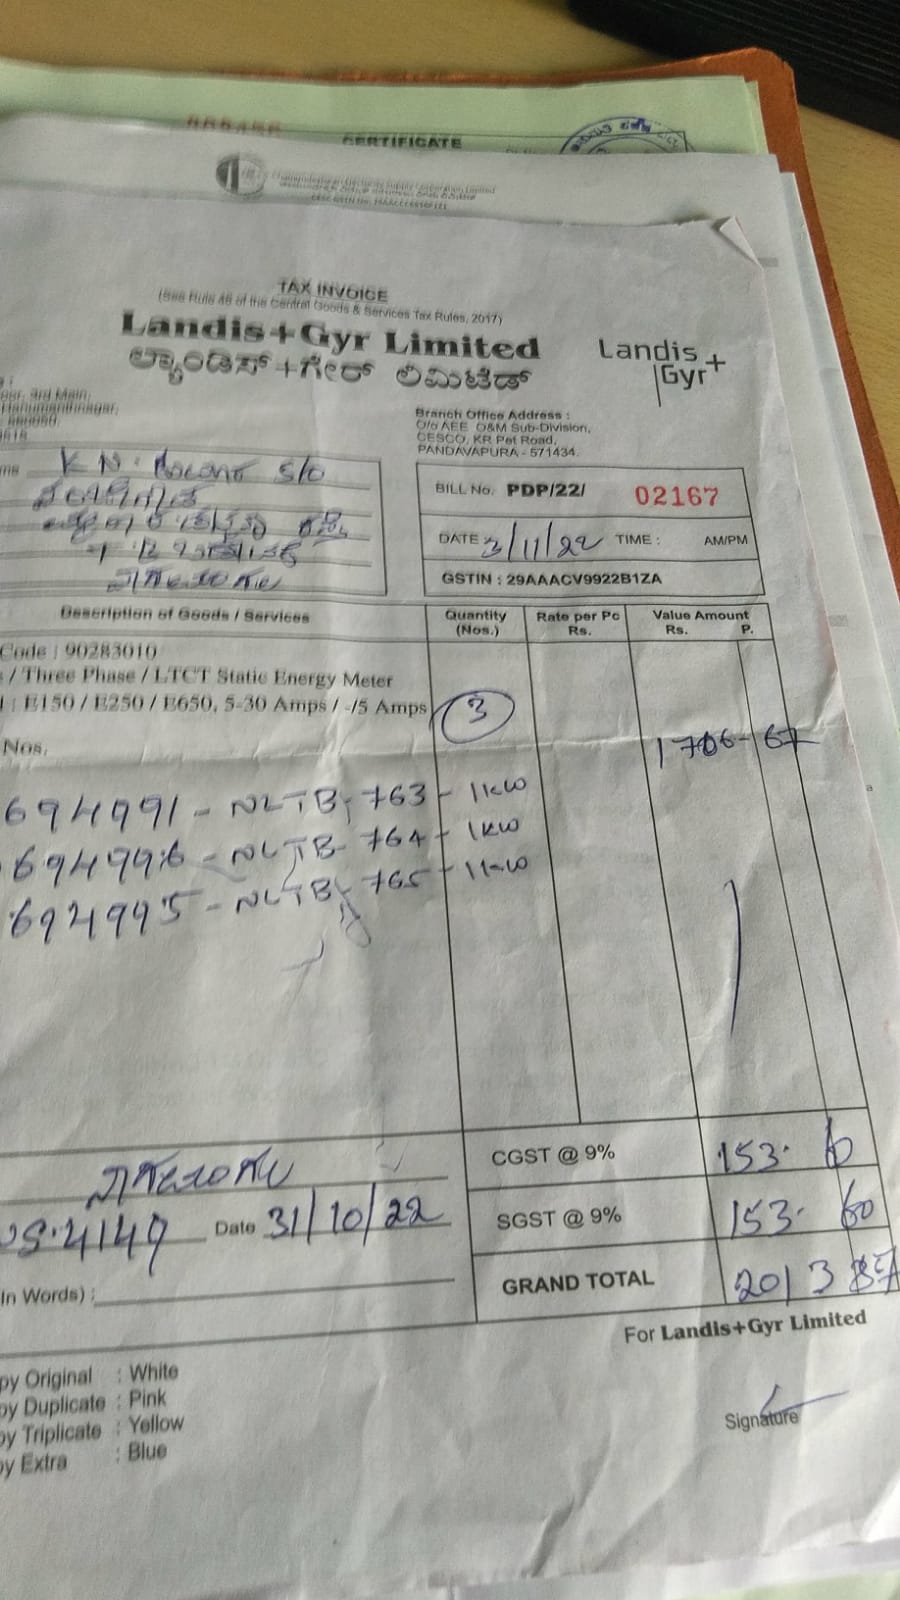 CERTIFICATE
Chamundeshwari Electricity Supply Corporation Limited
TAX INVOICE
(See Rule 46 of the Central Goods & Services Tax Rules, 2017)
Landis+Gyr Limited
ಲ್ಯಾಂಡಿಸ್+ಗೇರ್ ಲಿಮಿಟೆಡ್
Landis
Gyr+
3rd Main,
Hanumanthnagar,
Branch Office Address :
O/o AEE O&M Sub-Division,
CESCO, KR Pet Road,
PANDAVAPURA - 571434.
K N S/o
BILL No. PDP/22/ 02167
DATE : 3/11/22 TIME : AM/PM
GSTIN : 29AAACV9922B1ZA
Description of Goods / Services Quantity (Nos.) Rate per Pc Rs. Value Amount Rs. P.
Code : 90283010
/ Three Phase / LTCT Static Energy Meter
: E150 / E250 / E650, 5-30 Amps / -/5 Amps 3
Nos. 1706-67
694991 - NLTB, 763 - 1KW
694996 - NLTB- 764 - 1KW
694995 - NLTB, 765 - 1KW
CGST @ 9% 153.
SGST @ 9% 153. 60
4149 Date 31/10/22
GRAND TOTAL 2013 87
In Words) :
For Landis+Gyr Limited
py Original : White
py Duplicate : Pink
py Triplicate : Yellow
py Extra : Blue
Signature